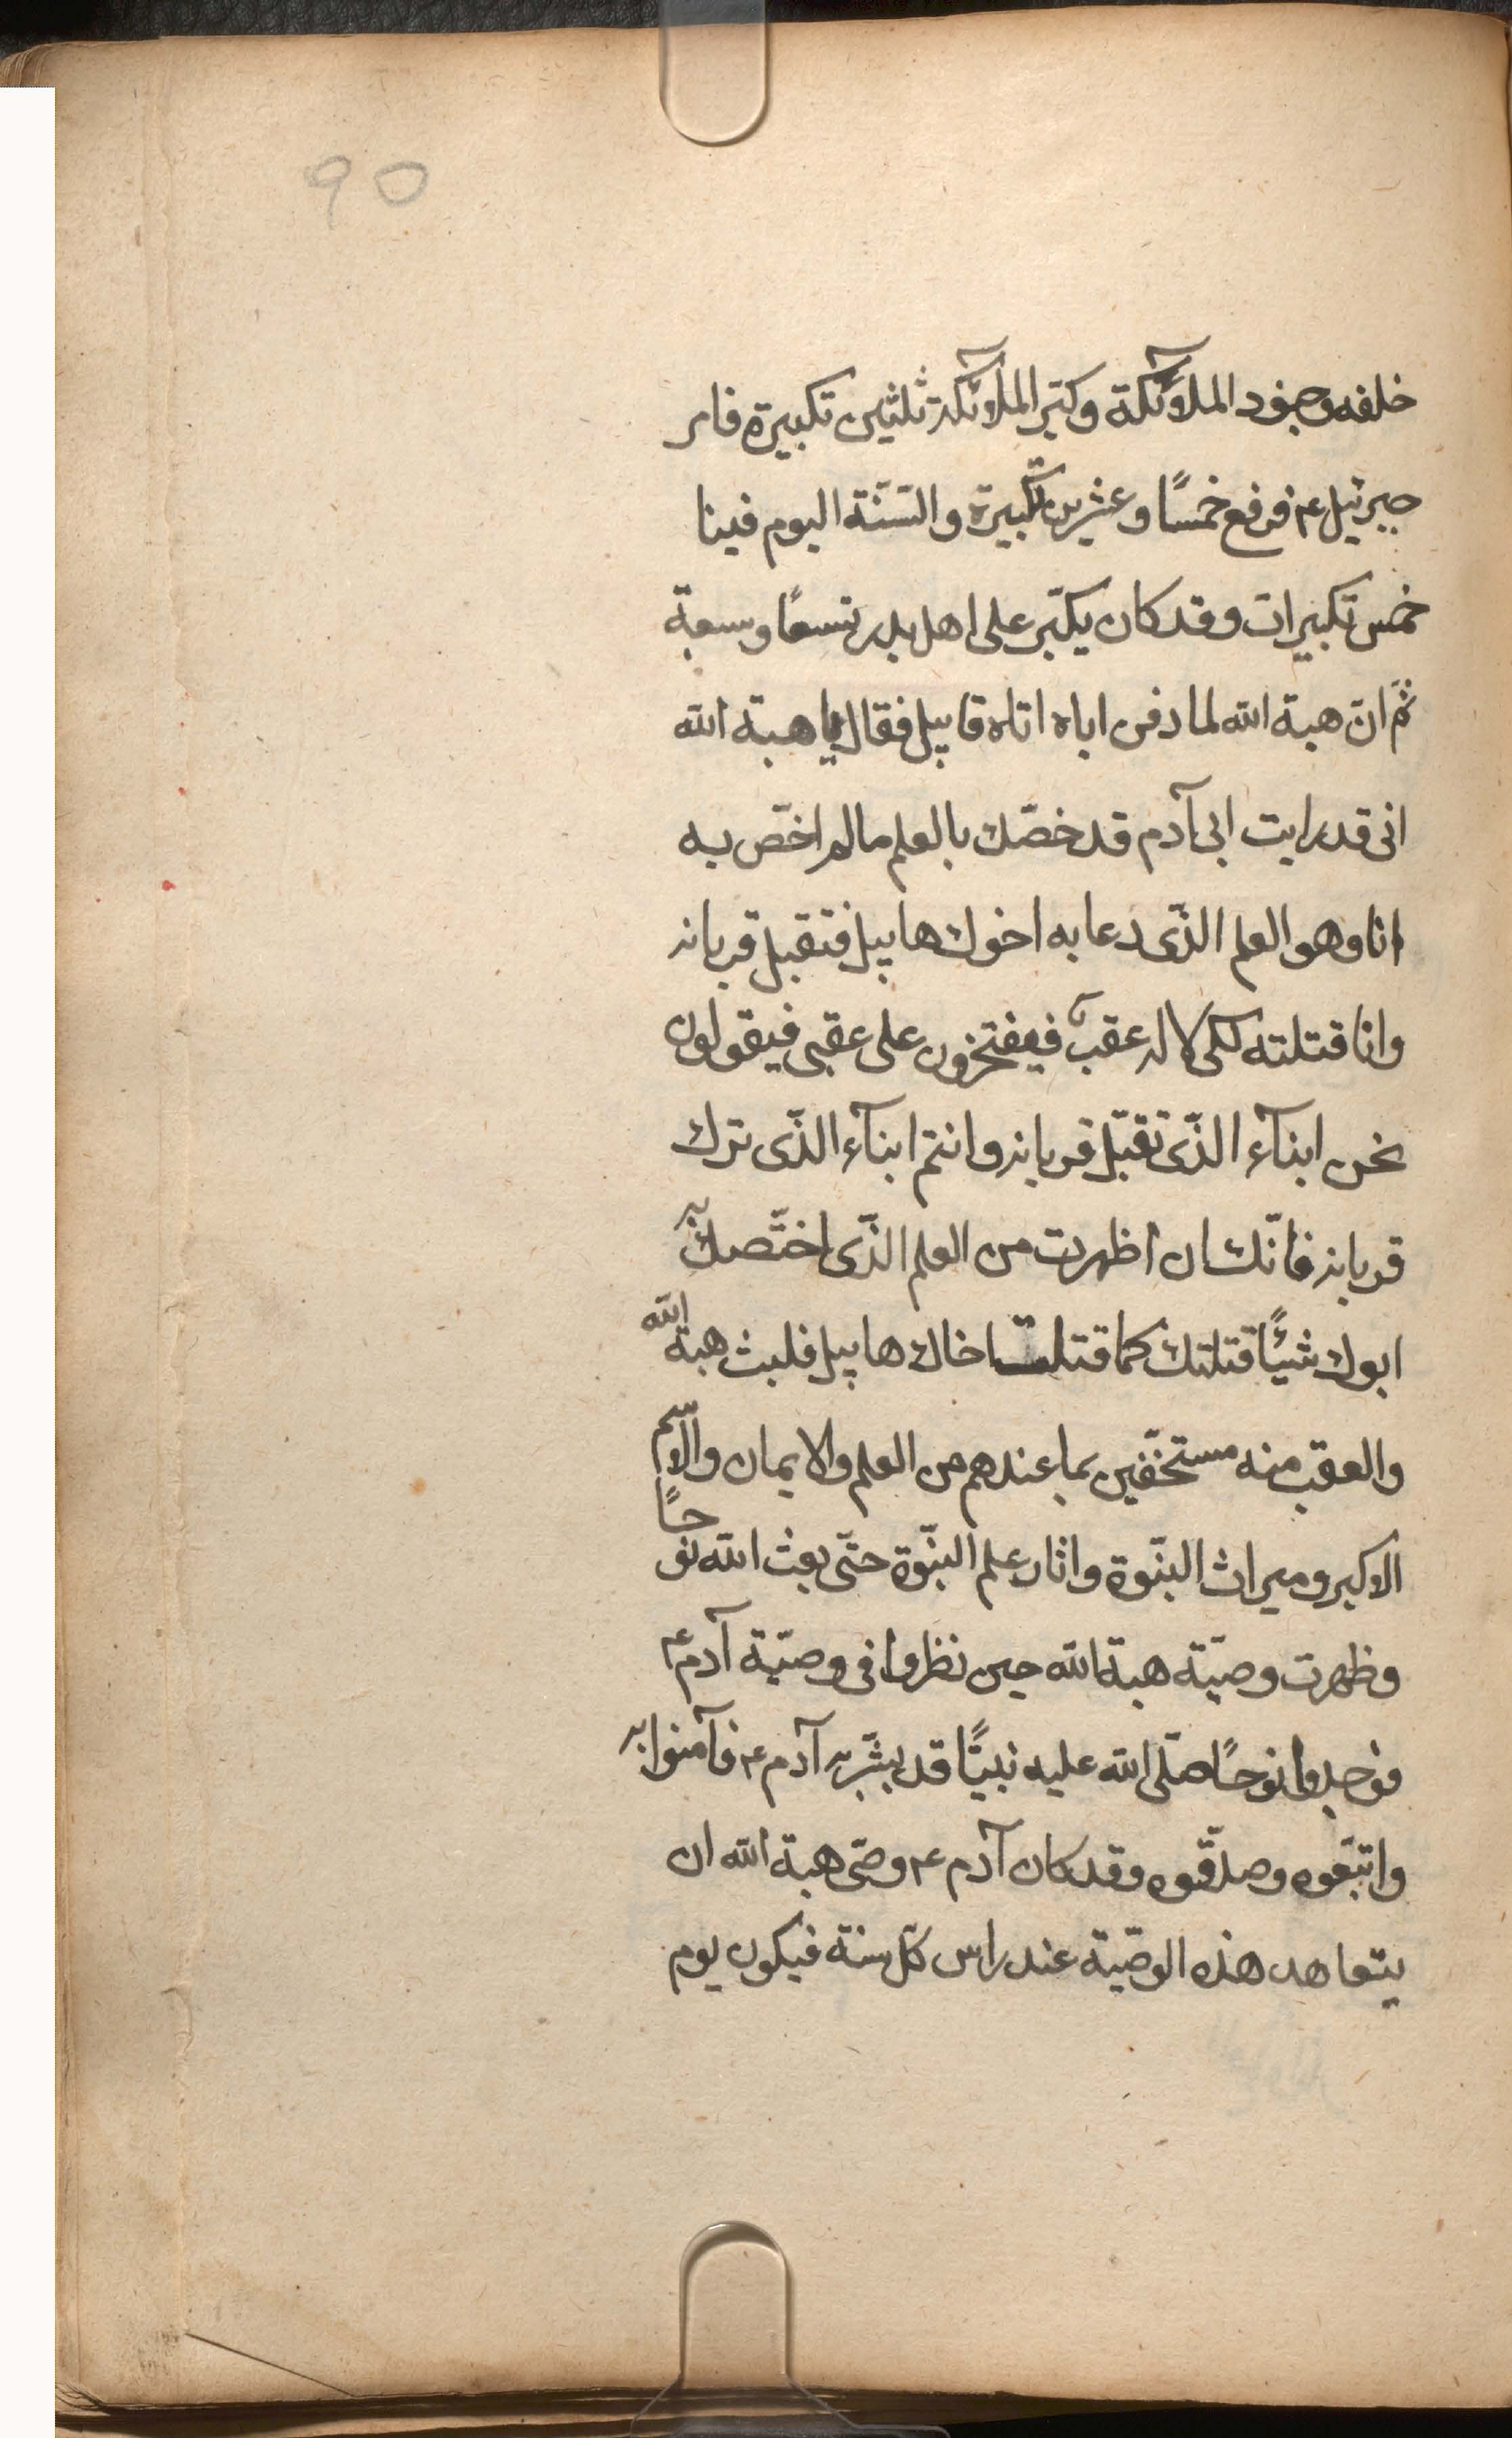 90
خلفه وجنود الملآئكة وكبّر الملآئكة ثلثين تكبيرة فامر
جبرئيل ع۴ فرفع خمسًا وعشرين تكبيرة والسّنّة اليوم فينا
خمس تكبيرات وقد كان يكبّر على اهل بدر تسعًا وسبعة
ثمّ انّ هبة الله لما دفن اباه اتاه قابيل فقال يا هبة الله
انى قد رايت ابى آدم قد خصّك بالعلم ما لم اخصّ به
انا وهو العلم الذّى دعا به اخوك هابيل فتقبل قربانه
وانا قتلته لكى لا له عقبٌ فيفتخرون على عقبى فيقولون
نحن ابنآء الذّى تقبّل قربانه وانتم ابنآء الذّى ترك
قربانه فانّك ان اظهرت من العلم الذّى اختّصك به
ابوك شيئًا قتلتك كما قتلت اخاك هابيل فلبث هبة الله
والعقب منه مستخفّين بما عندهم من العلم والايمان والاسّم
الاكبر وميراث النبّوة واثار علم النبّوة حتّى بعث الله نوحًا
وظهرت وصيّة هبة الله حين نظروا فى وصيّة آدم ع۴
فوجدوا نوحًا صلّى الله عليه نبيًّا قد بشّر به آدم ع۴ فآمنوا به
واتبّعوه وصدّقوه وقد كان آدم ع۴ وصّى هبة الله ان
يتعاهد هذه الوصيّة عند راس كلّ سنة فيكون يوم